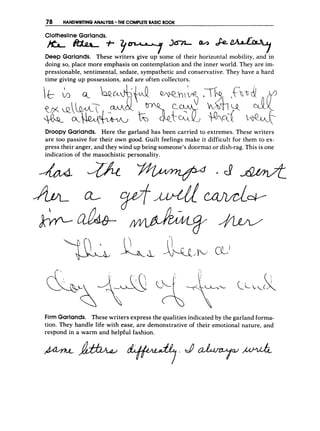 78 HANDWRITING ANALYSIS - THE COMPLETE BASIC BOOK
Clothesline Garlands.
The + young son as Secretary
Deep Garlands. These writers give up some of their horizontal mobility, and in
doing so, place more emphasis on contemplation and the inner world. They are im-
pressionable, sentimental, sedate, sympathetic and conservative. They have a hard
time giving up possessions, and are often collectors.
It is a beautiful evening. The food is
excellent, and one can notice all
the attention to detail that went
Droopy Garlands. Here the garland has been carried to extremes. These writers
are too passive for their own good. Guilt feelings make it difficult for them to ex-
press their anger, and they wind up being someone's doormat or dish-rag. This is one
indication of the masochistic personality.
has the Mumps. I sent
her a get well card
I'm also making her
This has been a
day full of fun and
Firm Garlands. These writers express the qualities indicated by the garland forma-
tion. They handle life with ease, are demonstrative of their emotional nature, and
respond in a warm and helpful fashion.
same letters differently. I always write